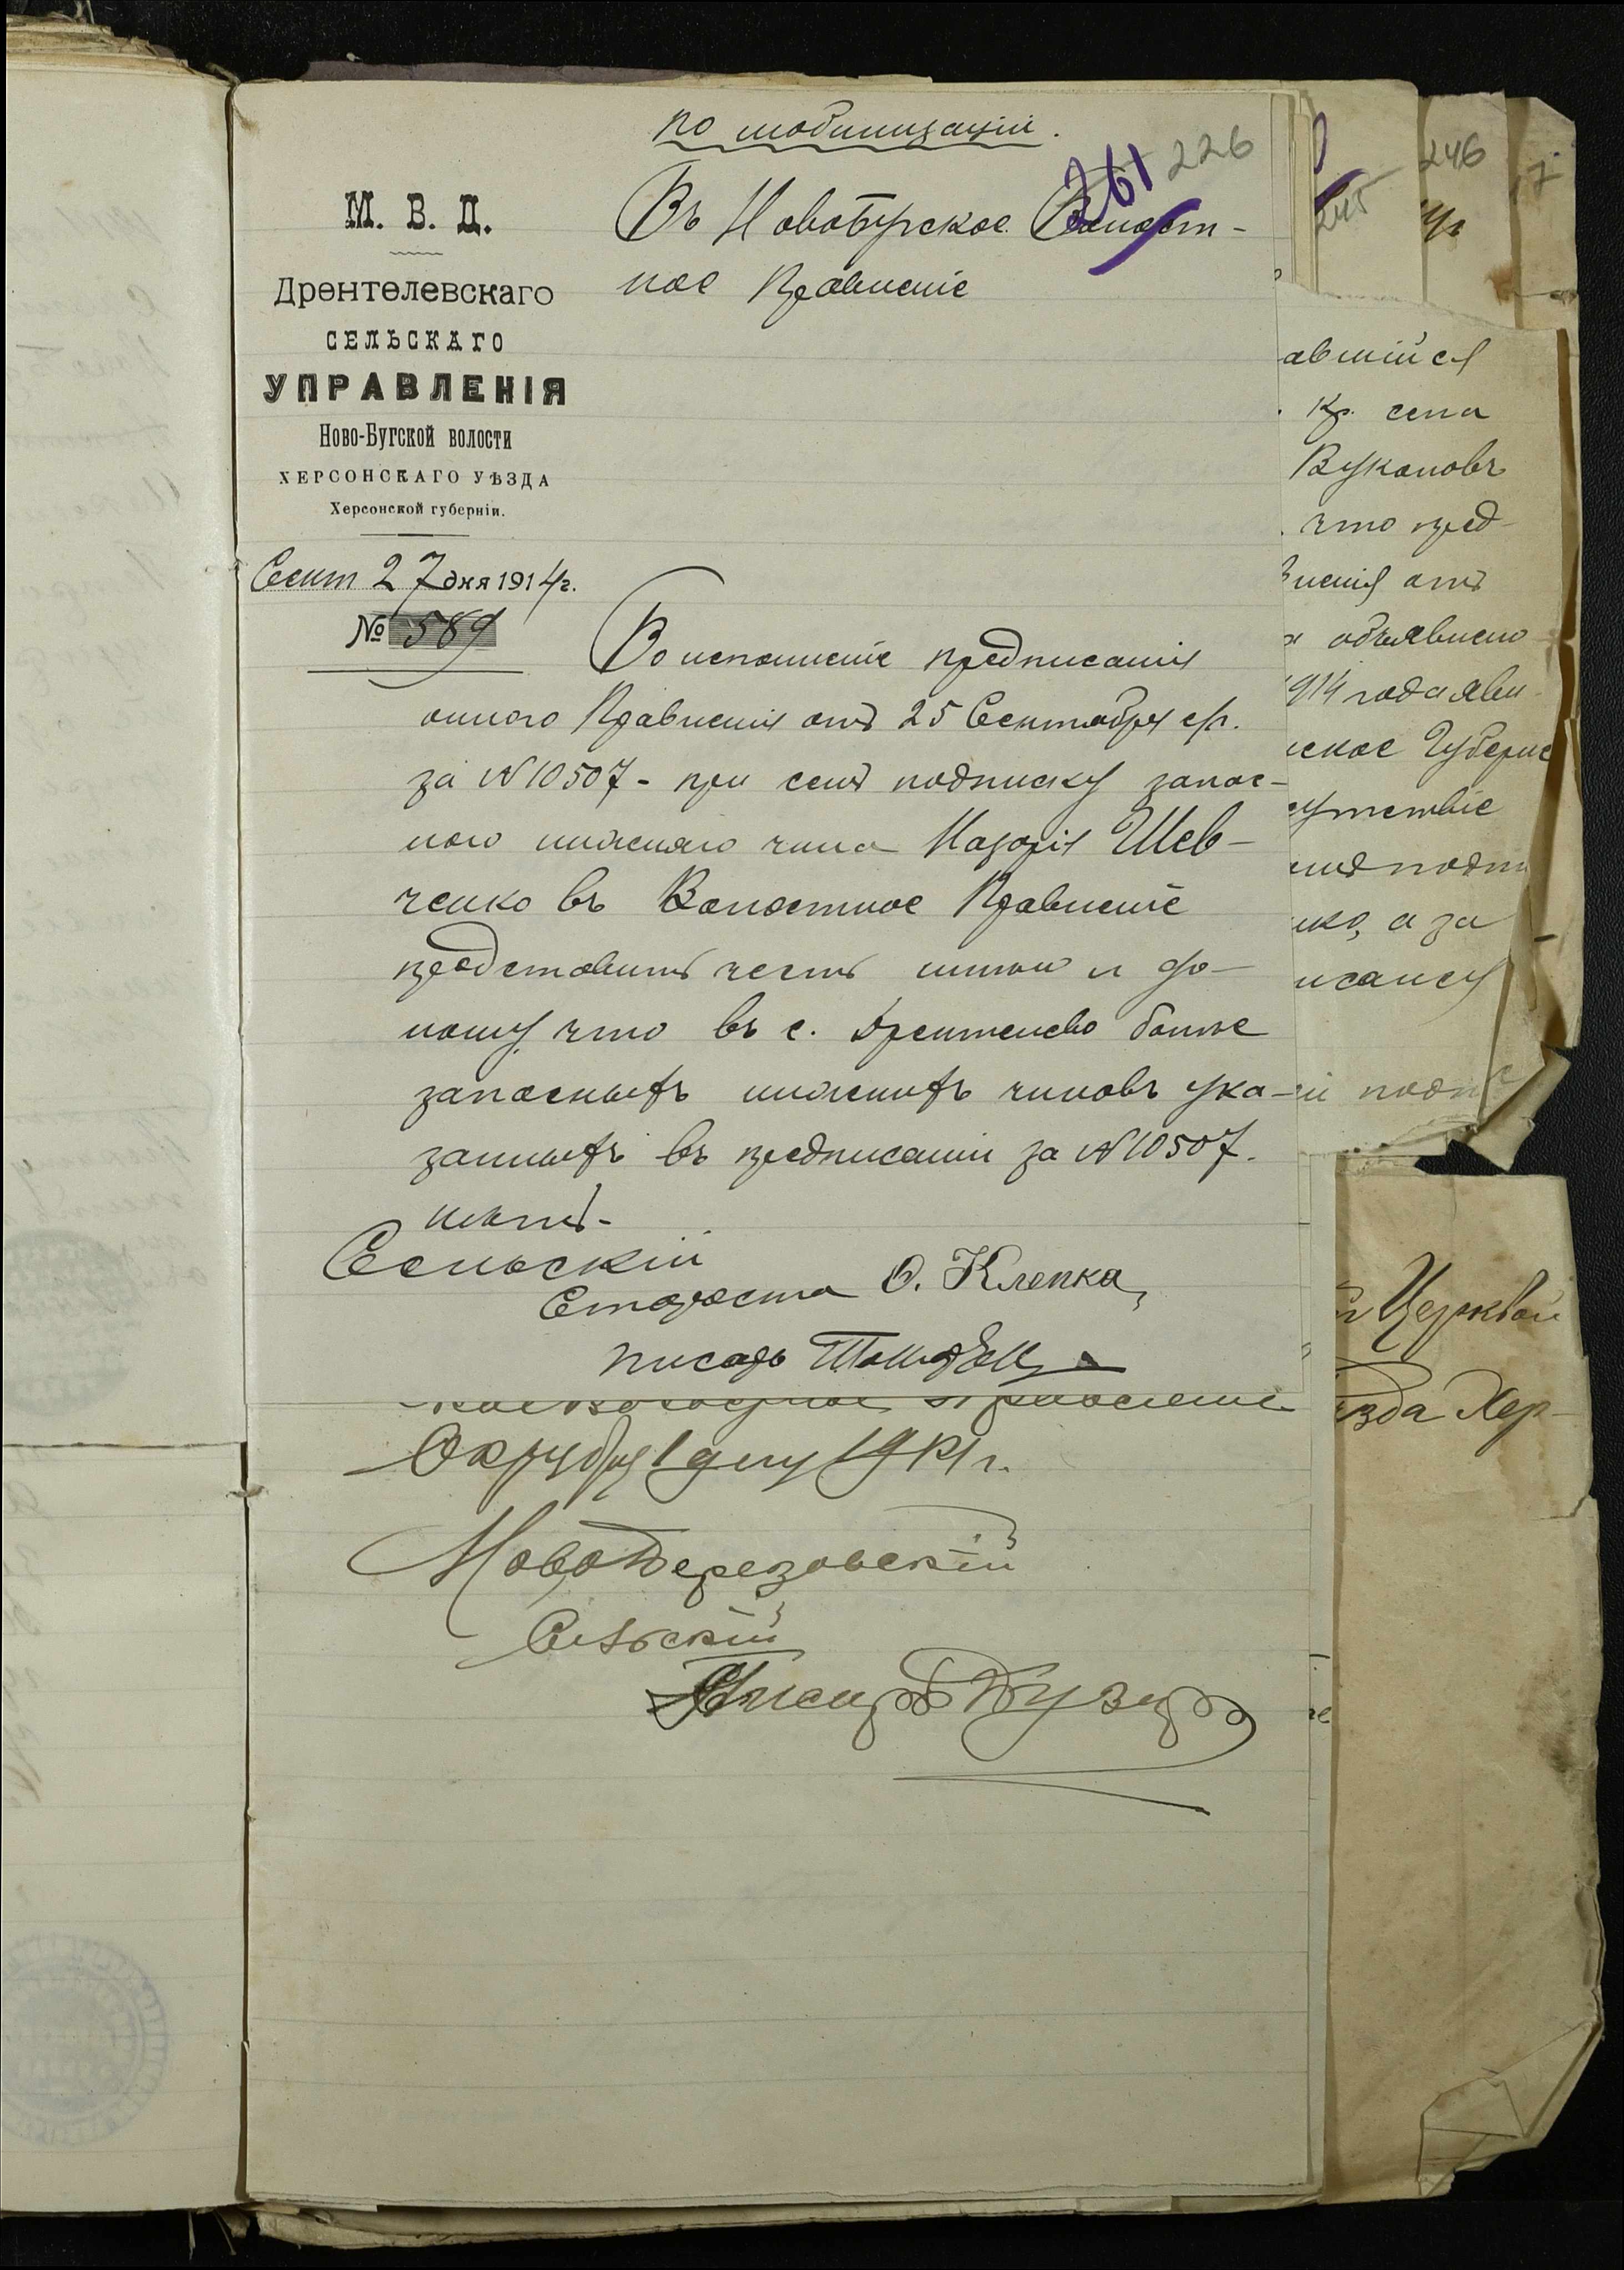 по мобилизаціи.
261 226
М. В. Д.
Дрентелевскаго
СЕЛЬСКАГО
УПРАВЛЕНІЯ
Ново-Бугской волости
ХЕРСОНСКАГО УѢЗДА
Херсонской губерніи.
Сент 27 дня 1914 г.
№ 589
Въ Новобугское Волост-
ное Правленіе
Во исполненіе предписанія
онного Правленія отъ 25 Сентября с/г.
за № 10507 - при семъ подписку запас-
ного нижняго чина Назарія Шев-
ченко въ Волостное Правленіе
представить честь имѣю и до-
ношу, что въ с. Дрентелево болѣе
запасныхъ нижнихъ чиновъ ука-
занныхъ въ предписаніи за № 10507.
нѣтъ.
Сельскій
Староста О. Клепка,
писарь
Правленіе
Октября 1 дня 1914 г.
Новоберезовскій
Сельскій
Писарь
246
245
авшійся
Кр. села
Вукановъ
что пред-
вленія отъ
объявлено
1914 года яви-
ское Губерн
сутствіе
а за
исансу
Церквои
ѣзда Хер-